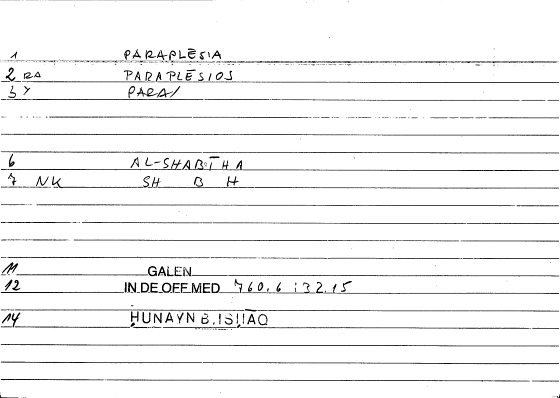 1 PARAPLĒSIA
2 RA PARAPLĒSIOS
3 Y PARA/
6 AL-SHABĪHA
7 NK SH B H
11 GALEN
12 IN.DE.OFF.MED 760.6 : 32.15
14 ḤUNAYN B.ISḤĀQ